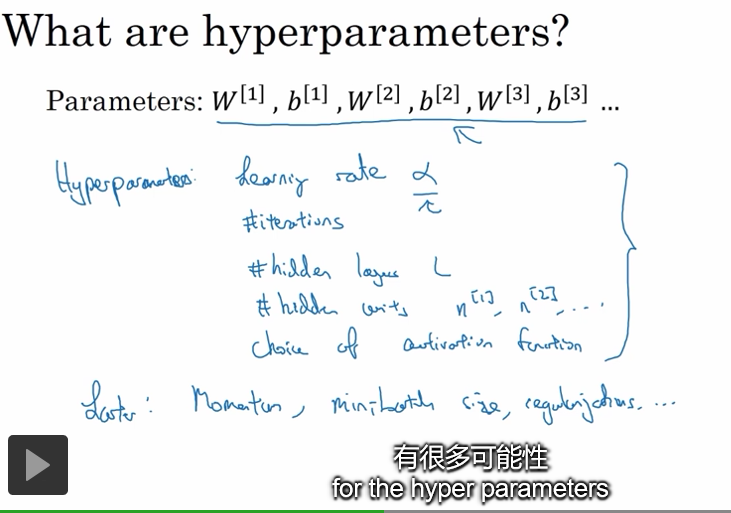 What are hyperparameters?
Parameters: W[1] , b[1] , W[2] , b[2] , W[3] , b[3] ...
Hyperparameters: Learning rate α
#iterations
#hidden layers L
# hidden units n[1], n[2], ....
Choice of activation function
Later: Momentum, mini-batch size, regularizations. ...
有很多可能性
for the hyper parameters